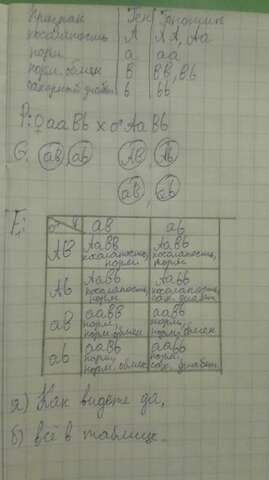 Признак Ген Генотип
косолапость А АА, Аа
норм. а аа
норм. обмен В ВВ, Вb
сахарный диабет b bb
P: ♀ aaBb x ♂ AaBb
G: aB, ab AB Ab
aB, ab
F: aB ab
AB AaBB косолапость, норм. AaBb косолапость, норм.
Ab AaBb косолапость, норм. Aabb косолапость, сах. диабет
aB aaBB норм., норм. обмен aaBb норм., норм. обмен
ab aaBb норм., норм. обмен aabb норм., сах. диабет
а) Как видете да,
б) всё в таблице.